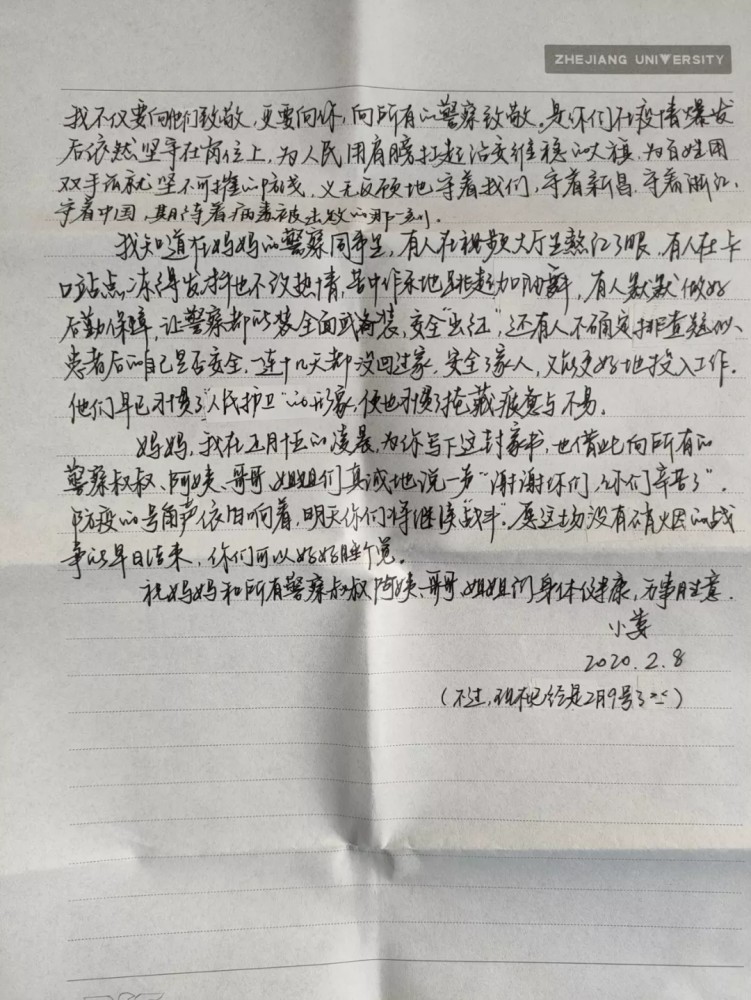 ZHEJIANG UNIVERSITY
我不仅要向他们致敬，更要向你，向所有的警察致敬。是你们在疫情爆发
后依然坚守在岗位上，为人民用肩膀扛起治安维稳的大旗，为百姓用
双手铸就坚不可摧的防线，义无反顾地守着我们，守着新昌，守着浙江，
守着中国，期待着病毒被击败的那一刻。
我知道在妈妈的警察同事里，有人在视频大厅里熬红了眼，有人在卡
口站点冻得发抖也不改热情，苦中作乐地跳起加油舞，有人默默做好
后勤保障，让警察都能装全面武备装，安全“出征”，还有人不确定排查疑似
患者后的自己是否安全，一连十几天都没回过家，安全了家人，又能更好地投入工作。
他们早已习惯了“人民护卫”的形象，便也习惯了掩藏疲惫与不易。
妈妈，我在正月十五的凌晨，为你写下这封家书，也借此向所有的
警察叔叔、阿姨、哥哥、姐姐们真诚地说一声“谢谢你们，你们辛苦了”。
防疫的号角声依旧响着，明天你们将继续“战斗”。愿这场没有硝烟的战
争能早日结束，你们可以好好睡个觉。
祝妈妈和所有警察叔叔、阿姨、哥哥、姐姐们身体健康，万事胜意。
小姜
2020.2.8
（不过，现在已经是2月9号了）